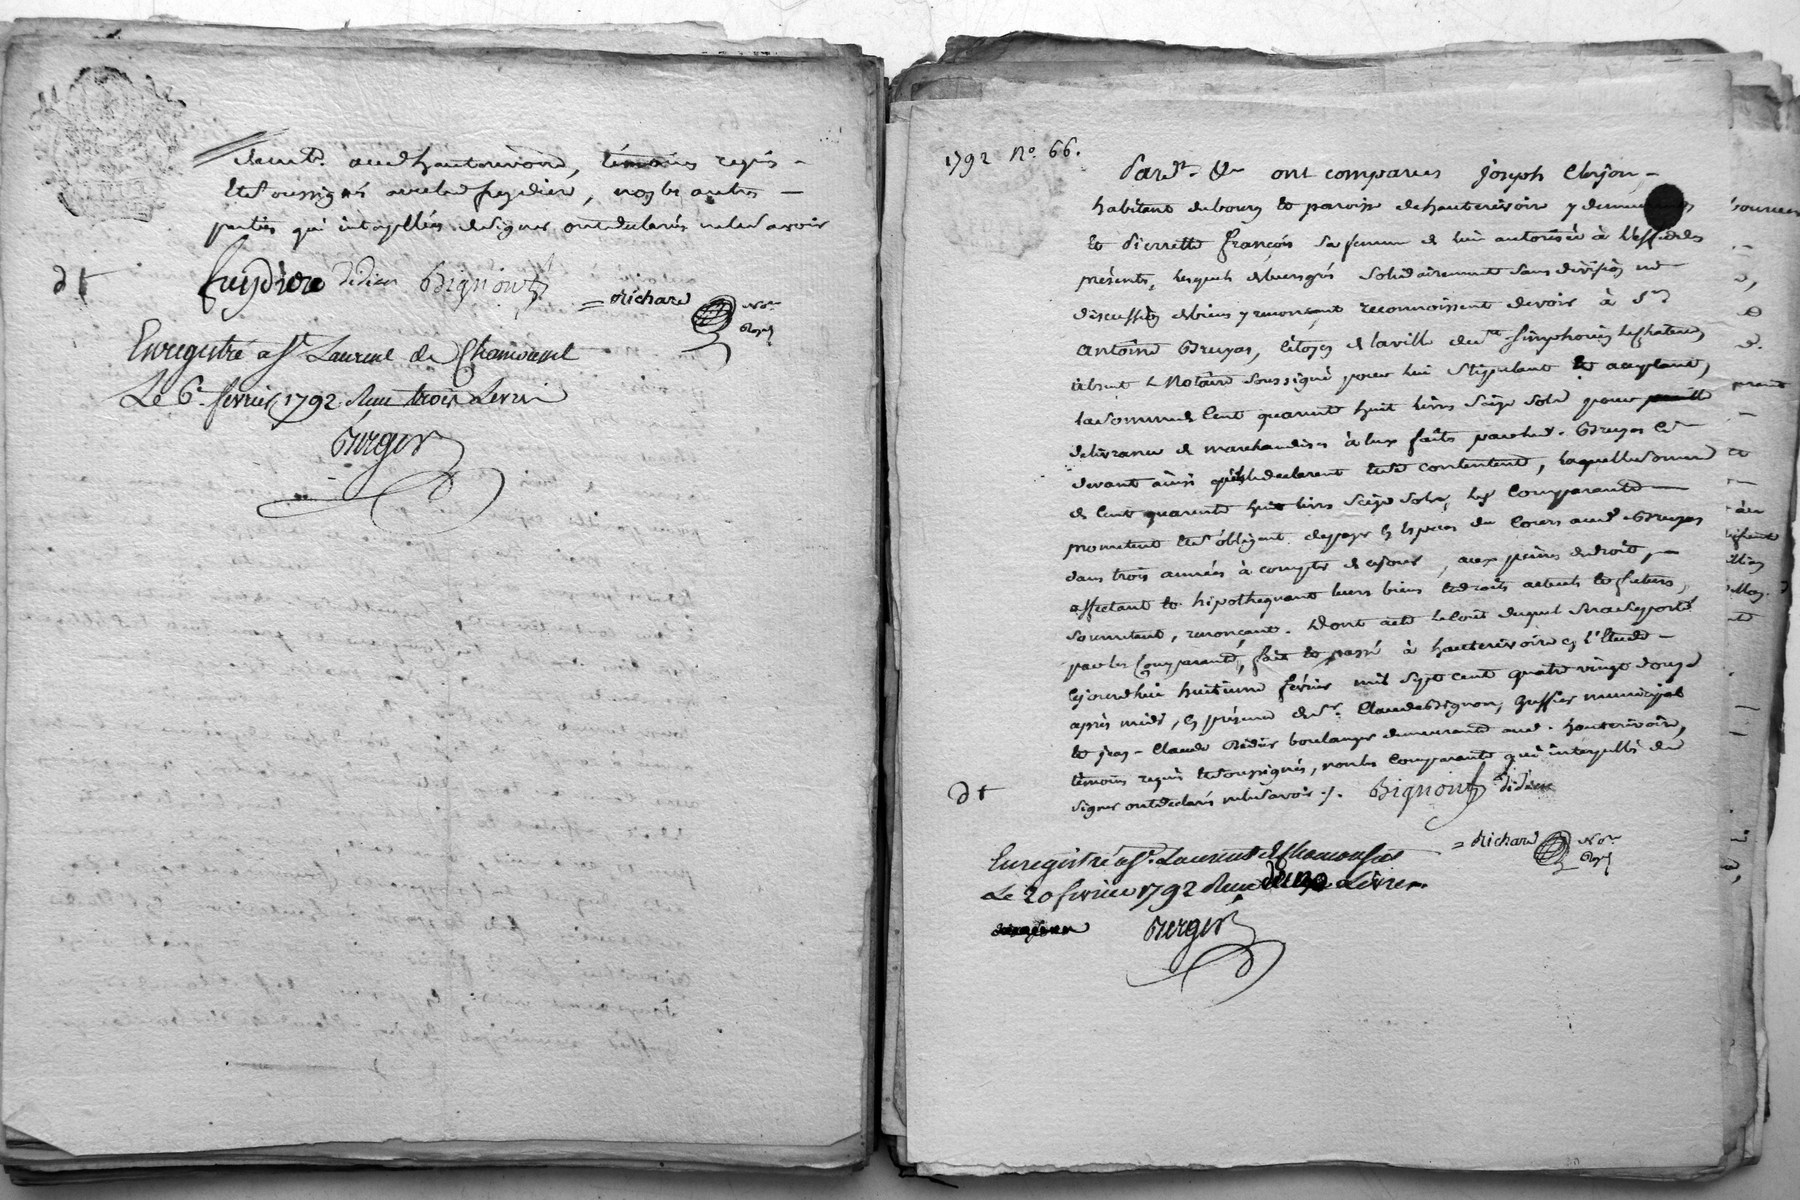 demt. aud. hauterivoire, témoins requis
et soussignés avec led. feydière, non les autres
parties qui interpellées de signer ont déclarés ne le savoir
dt
feydiere didier Bignont
= Richard Nore
Royal
Enregistré a St. Laurent de Chamousset
Le 6e fevrier 1792 Reçu trois Livres
Berger
1792 No. 66.
Pardt. &c ont comparus joseph Clerjon,
habitant du bourg et paroisse de hauterivoire y demeurant
et Pierrette françois sa femme de lui autorisée à l'effet des
présents, lesquels de leurs grés solidairement sans division ne
discussion de biens y renonçant reconnoissent devoir à Sr.
antoine Bruyas, citoyen de la ville de St. simphorien
absent le Notaire soussigné pour lui stipulant et acceptant,
la somme de Cent quarante huit livres seize sols pour
delivrance de marchandises à eux faite par led. Sr. Bruyas ci
devant ainsi qu'ils le declarent et s'en contentent, laquelle somme
de Cent quarante huit livres seize sols, les Comparants
promettent et s'obligent de payer en espèces du Cours aud. Bruyas
dans trois années à compter de ce jour, aux peines de droit,
affectant et hipothéquant leurs biens et droits actuels et futurs,
soumettant, renonçant. Dont acte le coût duquel sera supporté
par les Comparants, fait et passé à hauterivoire en l'Etude
cejourd'hui huitieme février mil sept cent quatre vingt douze
après midi, en présence de Sr. Claude Bignon, Greffier municipal
et jean-Claude Didier boulanger demeurants aud. hauterivoire,
témoins requis et soussignés, non les Comparants qui interpellés de
signer ont déclarés ne le savoir ./. Bignont didier
dt
= Richard Nore
Royal
Enregistré a St. Laurent de Chamousset
Le 20 fevrier 1792 Reçu Livres
Berger